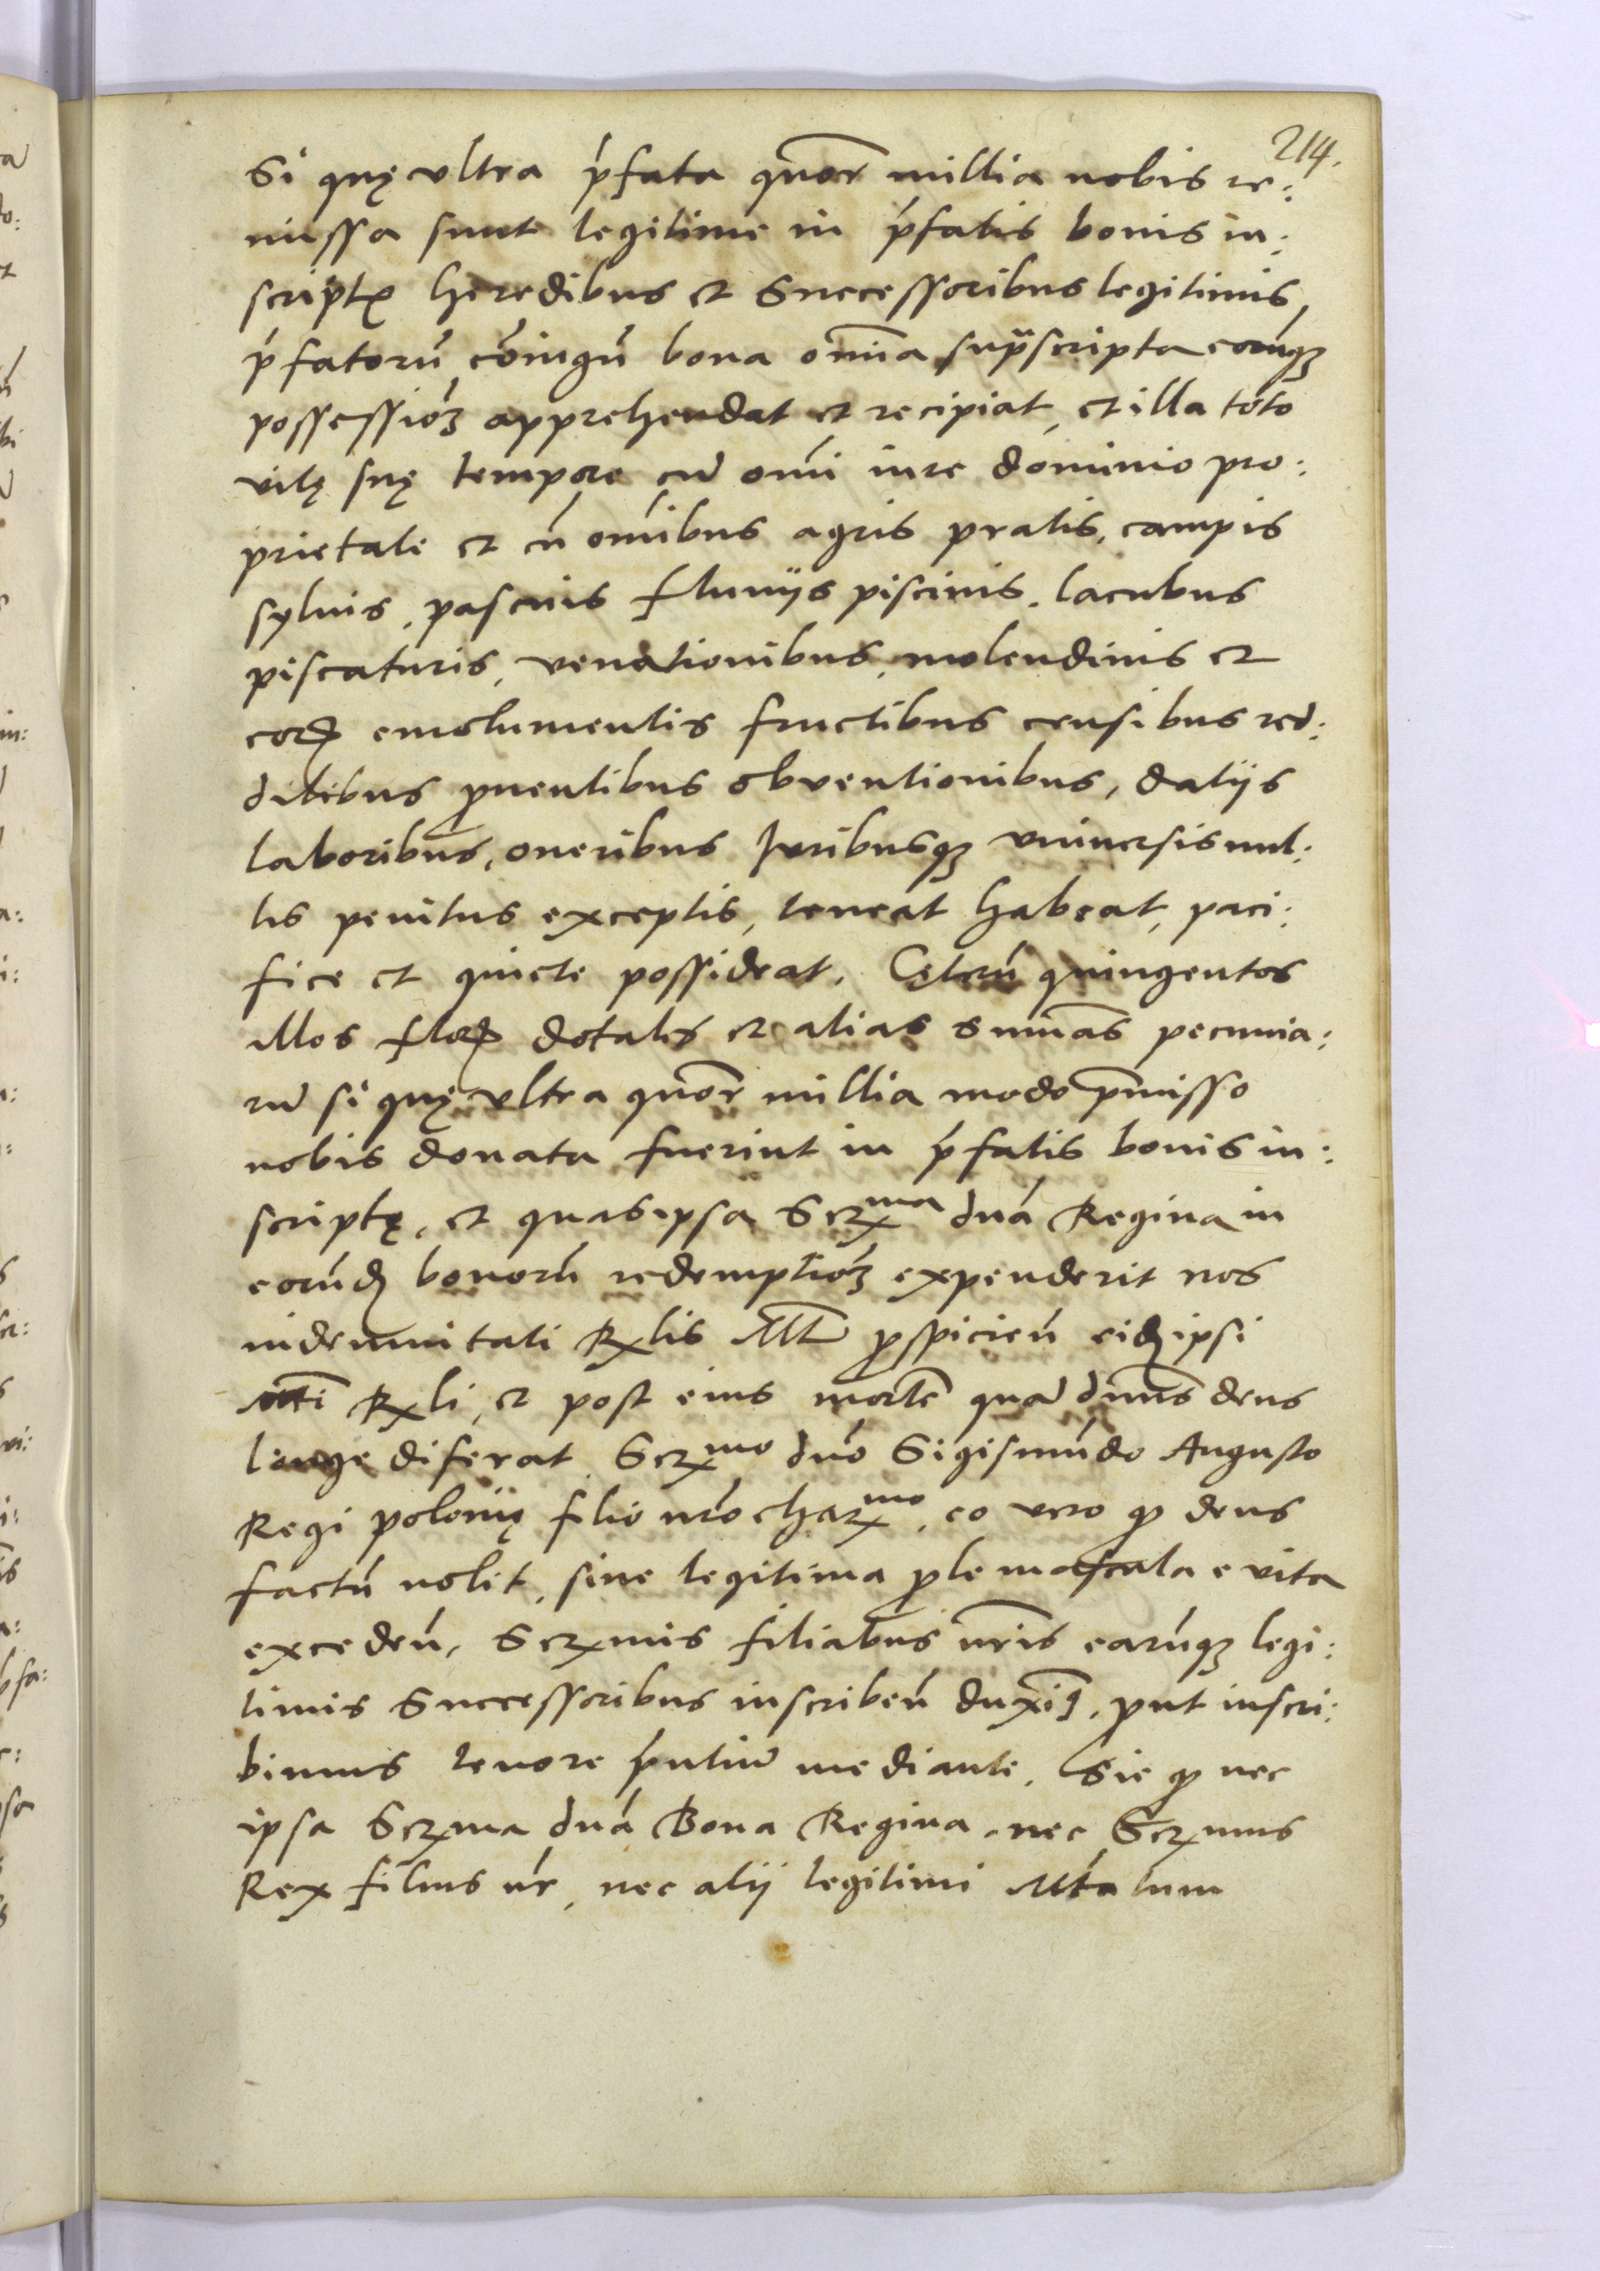 214.
Si quę ultra p̃fata quõr millia nobis re:
missa sunt legitime in p̃fatis bonis in:
scriptę heredibus et Successoribus legitimis,
p̃fatorũ coniugũ bona om̃ia supascripta eorũq3
possessiõ3 apprehendat et recipiat, et illa toto
vitę suę tempore cũ om̃i iure dominio pro:
prietate et cũ om̃ibus agris pratis, campis
syluis, pascuis fluuijs piscinis, lacubus
piscaturis, venationibus, molendinis et
eorꝫ emolumentis fructibus censibus red:
ditibus ꝓuentibus obventionibus, datijs
laboribus, oneribus Juribusq3 vniuersis nul:
lis penitus exceptis, teneat habeat, paci:
fice et quiete possideat. Cęterũ quingentos
illos florꝫ dotales et alias sum̃as pecunia:
rũ si quę ultra quõr millia modo p̃misso
nobis donata fuerint in p̃fatis bonis in:
scriptę, et quas ipsa Serma dña Regina in
eorũd bonorũ redemptiõ3 expenderit nos
indemnitati Rxlis Mtt ꝓspicień eid ipsi
Mti Rxli, et post eius mortẽ quã dnus deus
longe diferat Sermo dño Sigismũdo Augusto
Regi polonię filio nr̃o charmo, eo vero qȝ deus
factũ nolit, sine legitima ꝓle mascula e vita
excedeń, Sermis filiabus nr̃is earũq3 legi:
timis Successoribus inscribeń duxim9, ꝓut inscri:
bimus tenore p̃ntiũ mediante. Sic qȝ nec
ipsa Serma dña Bona Regina, nec Sermus
Rex filius nr̃, nec alij legitimi Mtã tum